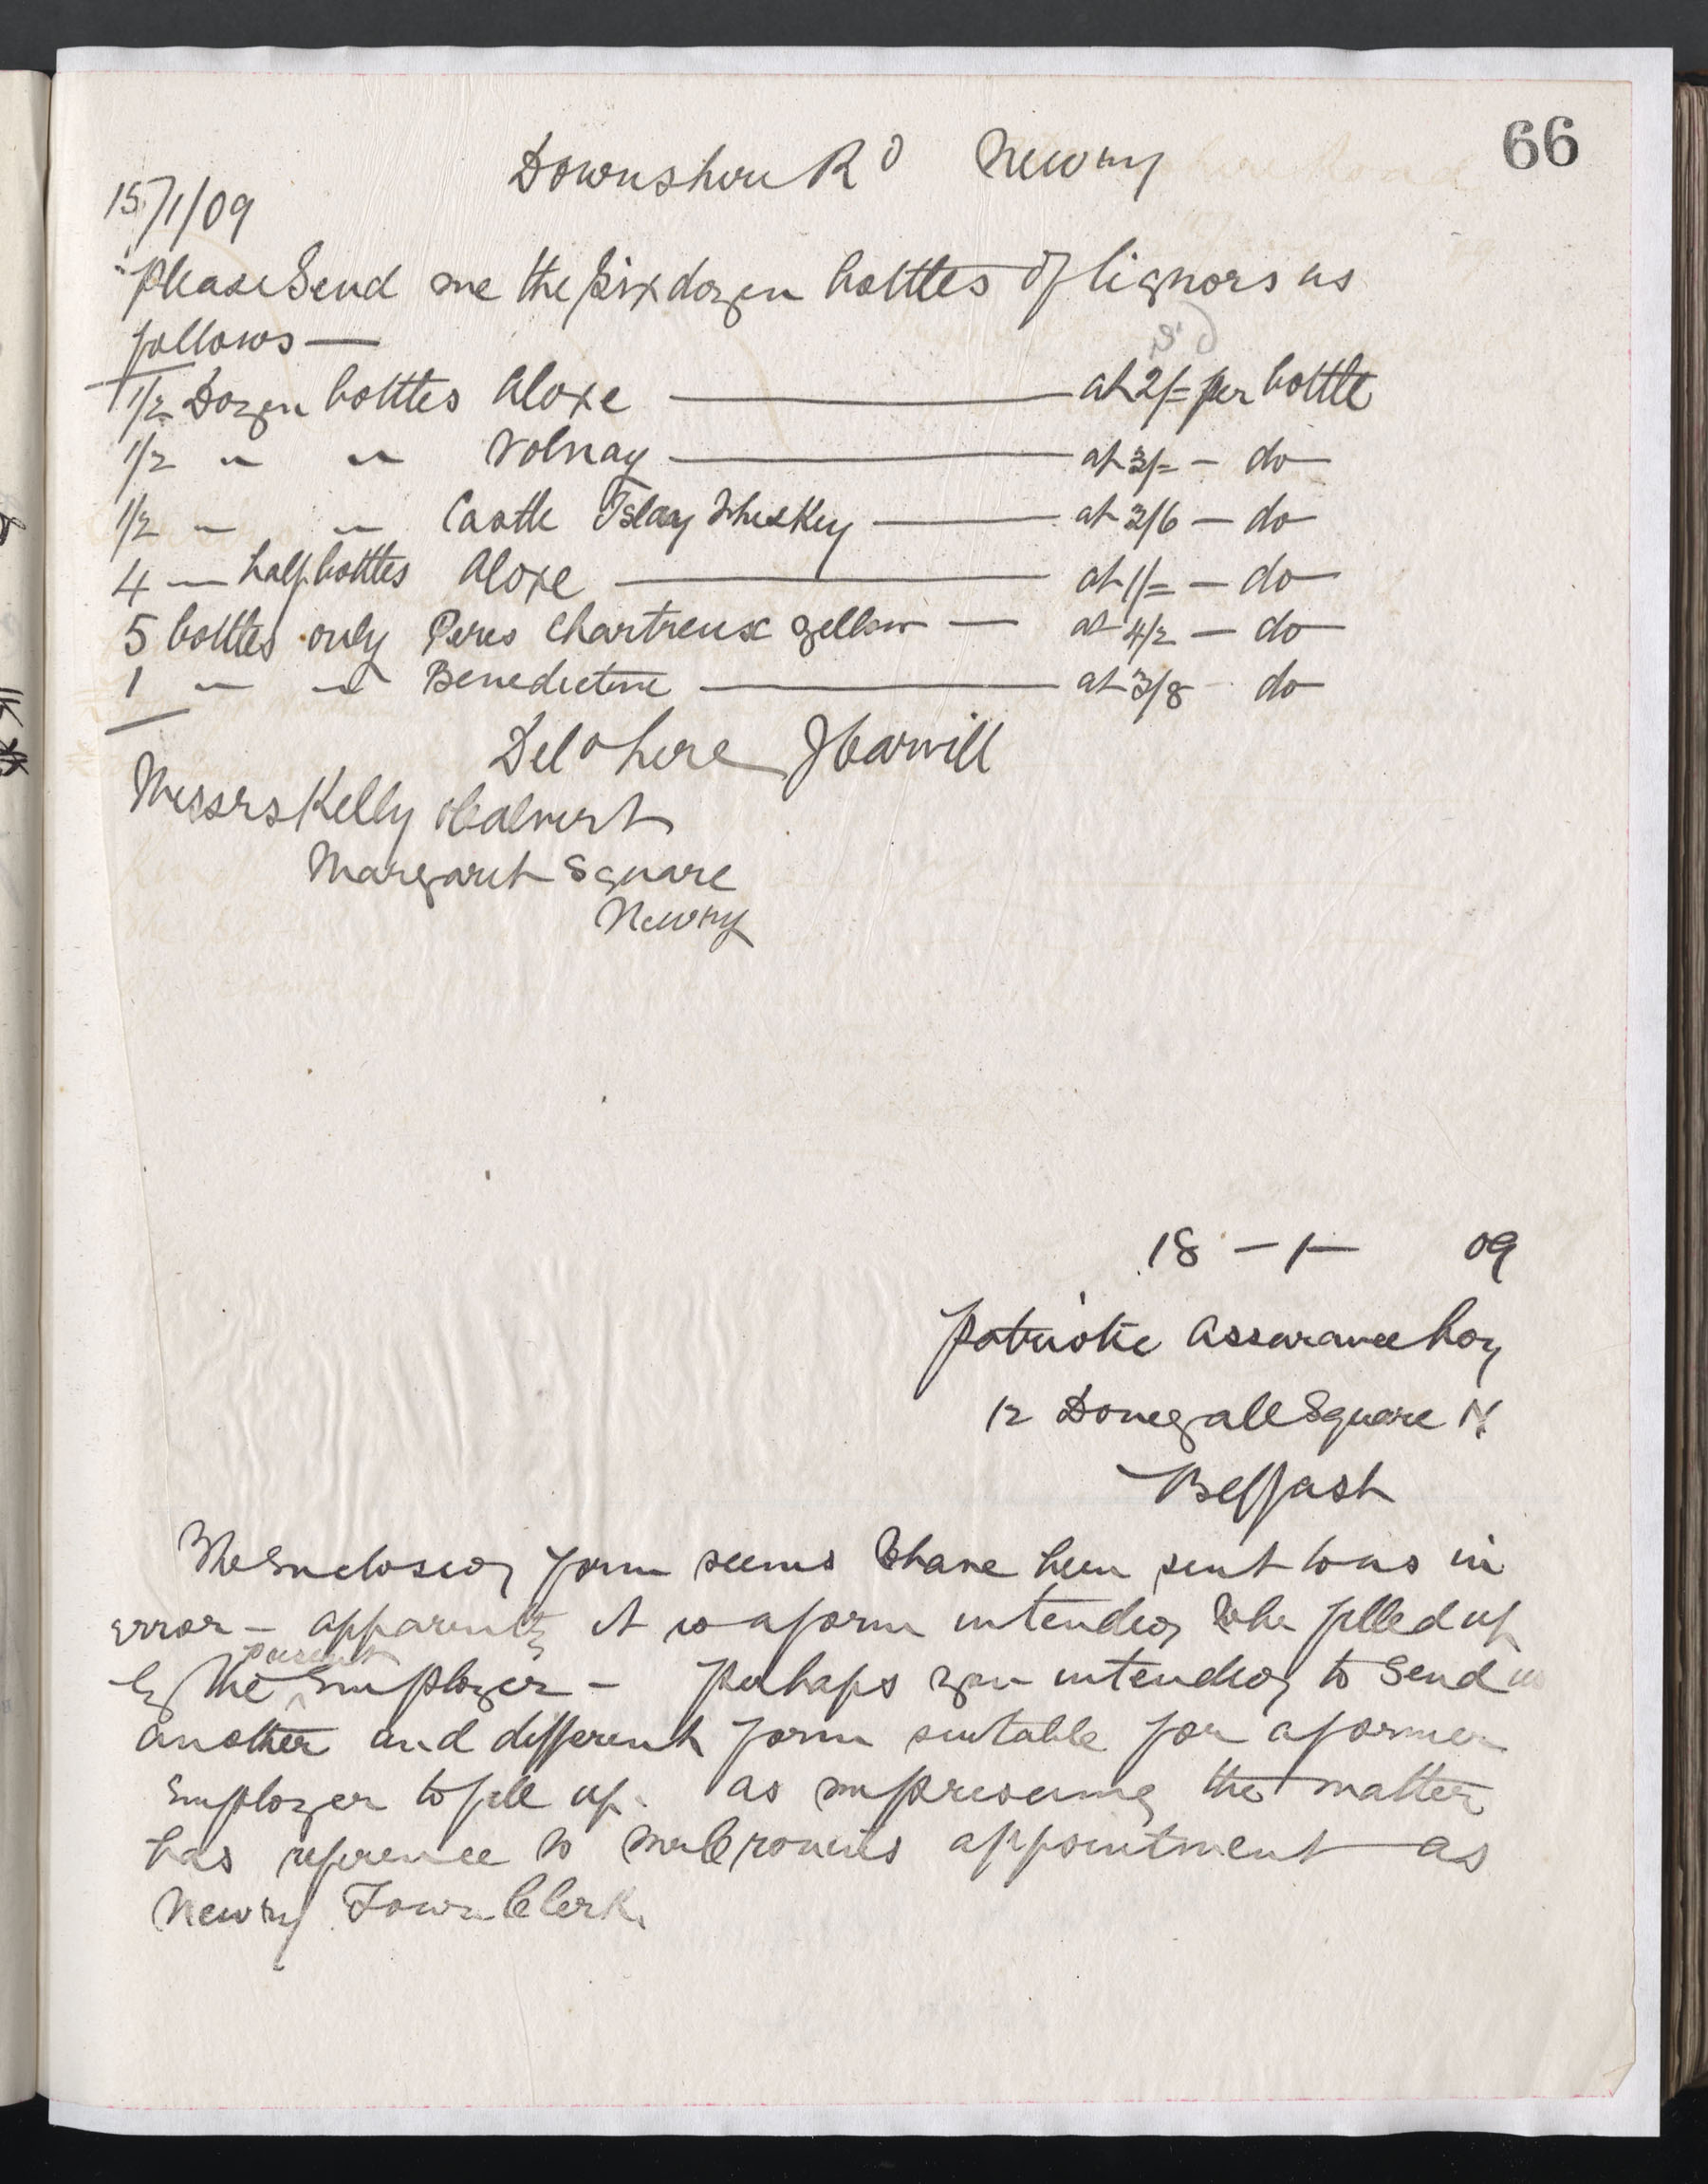 66
Downshire Rd Newry
15/1/09
Please Send me the six dozen bottles of liqnors as
follows —
s d
1/2 Dozen bottles Aloxe — at 2/= per bottle
1/2 " " Volnay — at 3/= — do —
1/2 " " Castle Islay Whiskey — at 3/6 — do
4 — half bottles Aloxe — at 1/= — do —
5 bottles only Peres Chartreux yellow — at 4/2 — do —
1 " " Benedictine — at 3/8 do —
Del o here J Carvill
Messrs Kelly Calvert
Margaret Square
Newry
18 — 1 — 09
Patriotic Assurance Coy
12 Donegall Square N.
Belfast
The Enclosed form seems to have been sent to us in
error — apparently it is a form intended to be filled up
present
by the ^ Employer — Perhaps you intended to Send us
another and different form suitable for a former
Employer to fill up. as the matter
has reference to Mr Cronins appointment as
Newry Town Clerk.